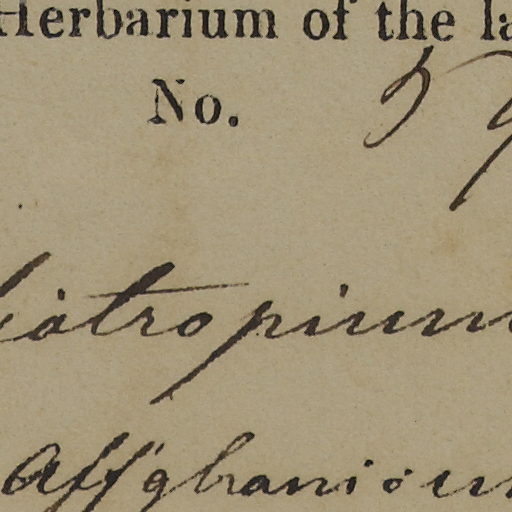 Herbarium of the la
No. 59
liotropium
Affghanis